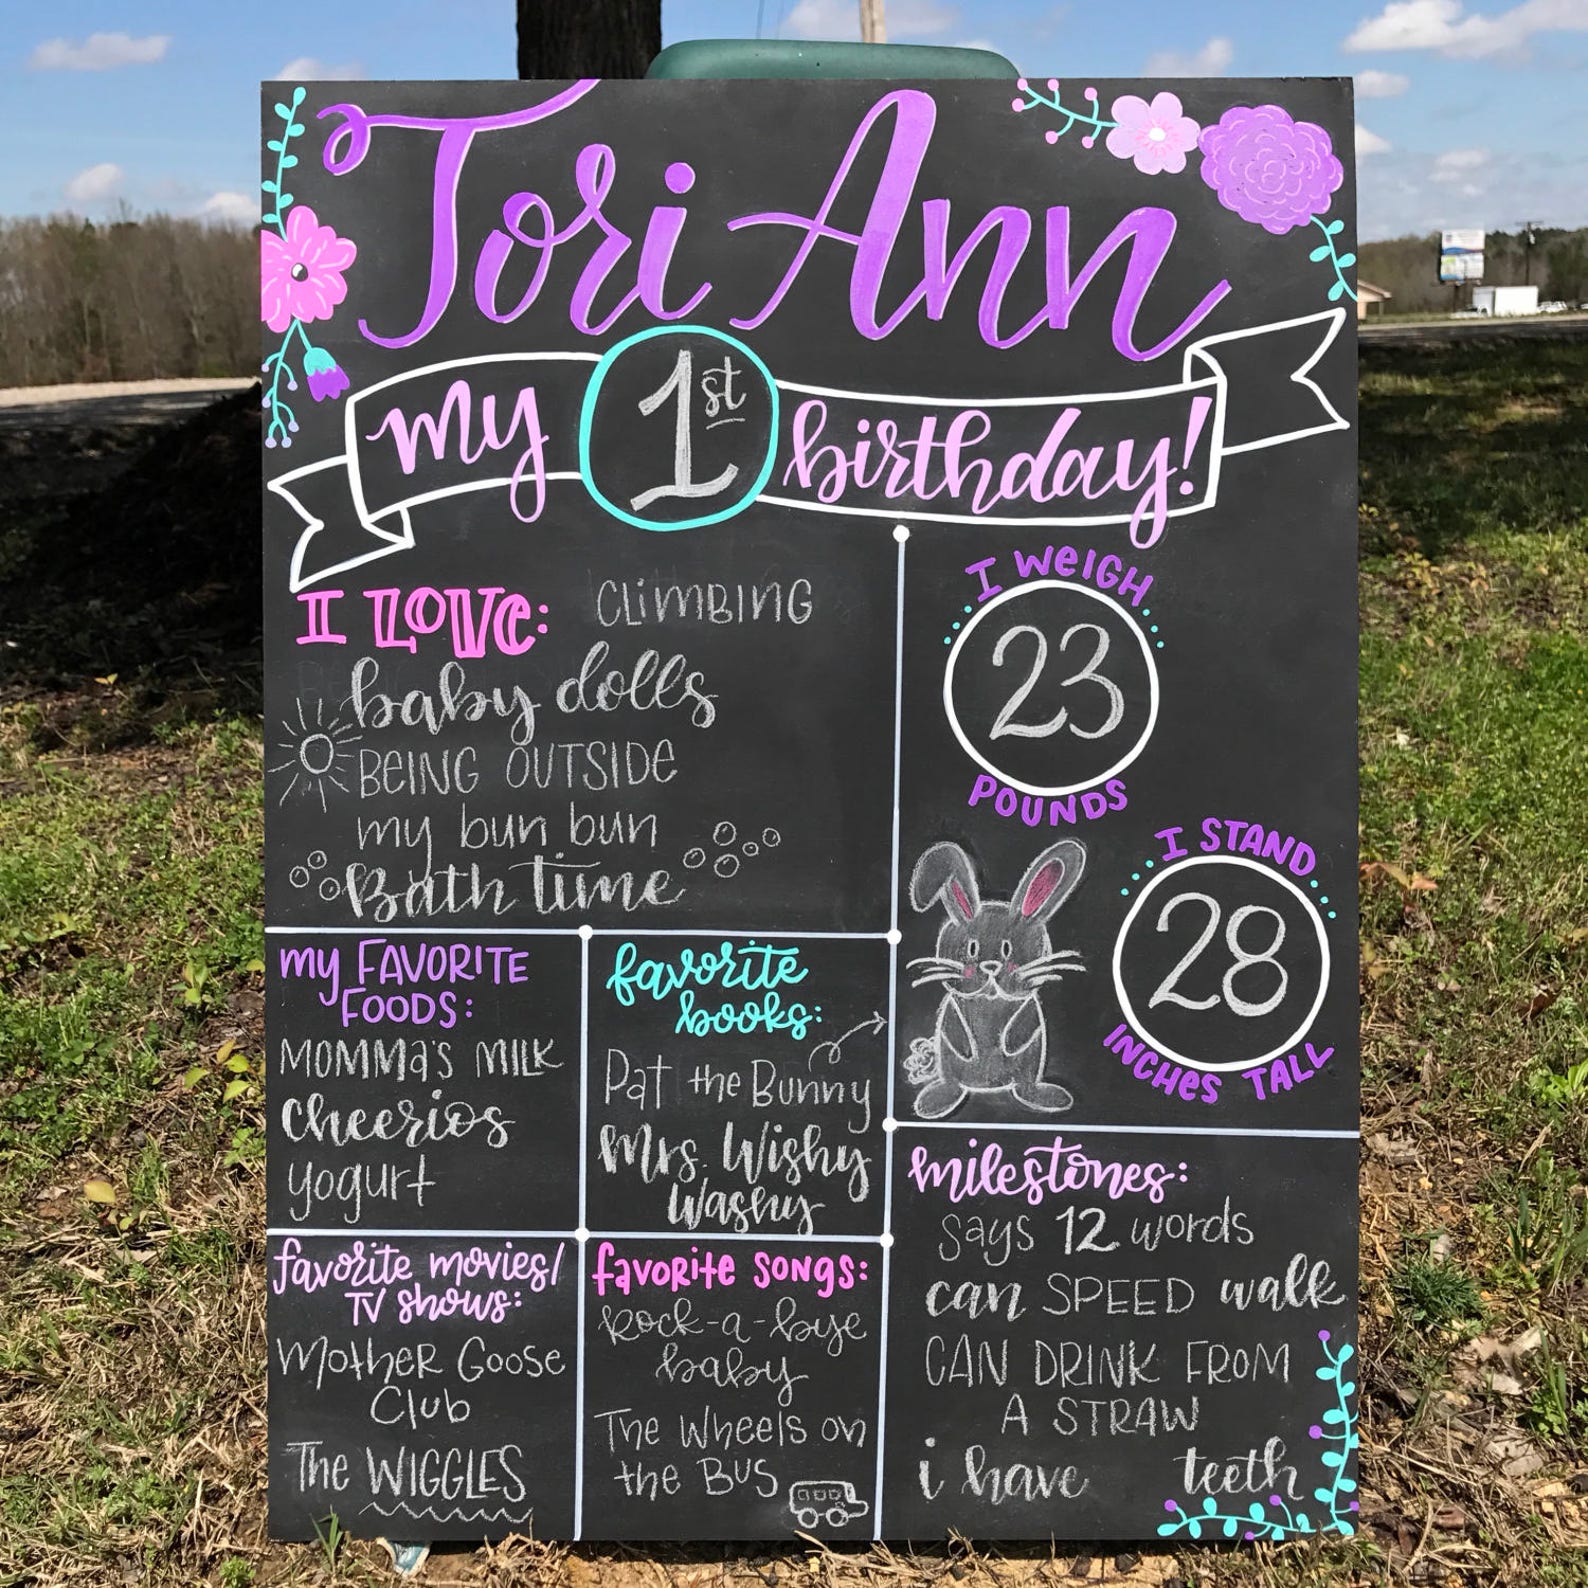 Tori Ann
my 1st birthday!
I LOVE: CLIMBING
baby dolls
BEING OUTSIDE
my bun bun
Bath time
I WEIGH
23
POUNDS
I STAND
28
INCHES TALL
my FAVORITE
FOODS:
MOMMA'S MILK
Cheerios
yogurt
favorite
books:
Pat the Bunny
Mrs. Wishy
Washy
favorite movies/
TV shows:
MOTHER GOOSE
Club
The WIGGLES
favorite songs:
Rock-a-bye
baby
The Wheels on
the Bus
milestones:
says 12 words
can SPEED walk
CAN DRINK FROM
A STRAW
i have teeth